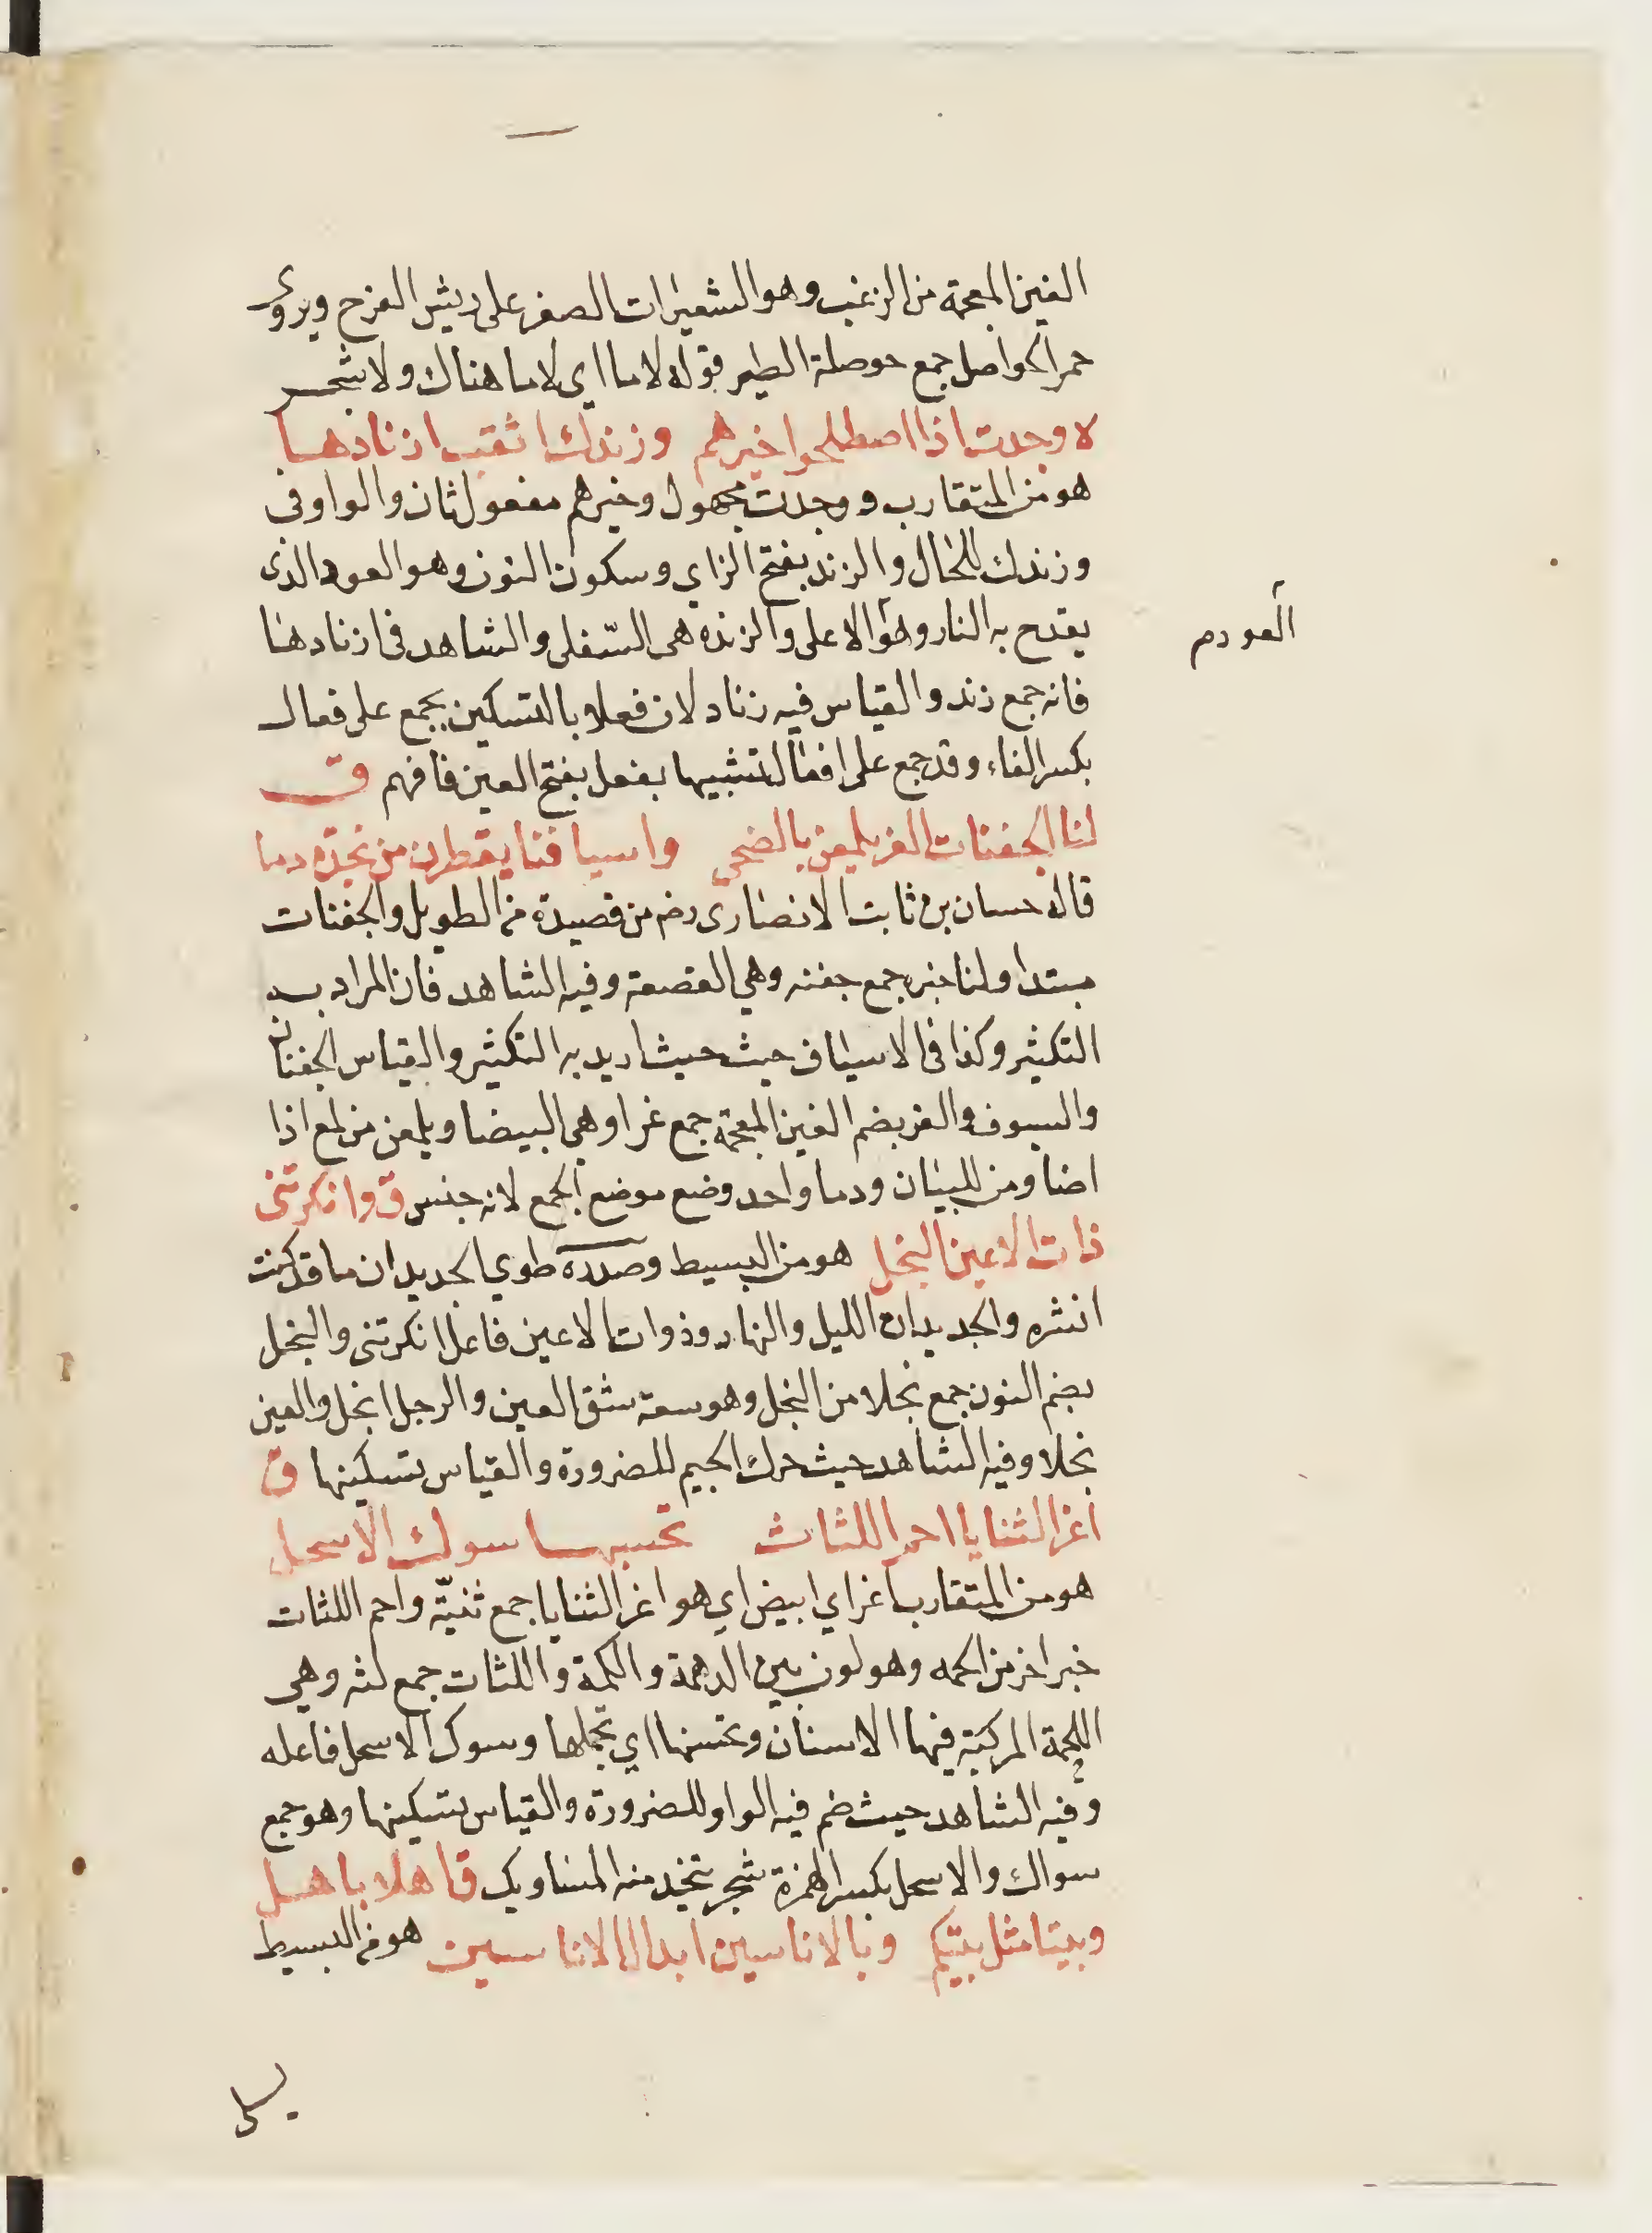 الغين المعجمة من الزغب وهو الشعيرات الصفر على ريش الفرخ ويروى
حمر الحواصل جمع حوصلة الطير قوله لا ما اي لا ما هناك ولا شجر
لا وجدت اذا اصطلحوا خيرهم وزندك اثقب ازنادها
هو من المتقارب ووجدت مجهول وخيرهم مفعول ثان والواو في
وزندك للحال والزند بفتح الزاي وسكون النون وهو العود الذى
يقدح به النار وهو الاعلى والزنده هى السّفلى والشاهد فى ازنادها
العود م
فانه جمع زند والقياس فيه زناد لان فعلا بالتسكين يجمع على فعال
بكسر الفاء وقد جمع على افعال لتشبيهها بفعل بفتح العين فافهم ق
لنا الجفنات الغر يلمعن بالضحى واسيافنا يقطرن من نجدة دما
قاله حسان بن ثابت الانصارى رضم من قصيدة من الطويل والجفنات
مبتدا ولنا خبره جمع جفنه وهي القصعة وفيه الشاهد فان المراد به
التكثير وكذا فى الاسياف حيث حيث اريد به التكثير والقياس الجفنان
والسيوف والغر بضم الغين المعجمة جمع غرا وهي البيضا ويلمعن من لمع اذا
اضا ومن للبيان ودما واحد وضع موضع الجمع لانه جنس ق وانكرتنى
ذات الاعين النجل هو من البسيط وصدره طوي الجديدان ما قد كنت
انشره والجديدان الليل والنهار وذوات الاعين فاعل انكرتنى والنجل
بضم النون جمع نجلا من النجل وهو سعة شق العين والرجل انجل والعين
نجلا وفيه الشاهد حيث حرك الجيم للضرورة والقياس تسكينها ق
اغر الثنايا احم اللثاث تحسبها سوك الاسحل
هو من المتقارب اغر اي ابيض اي هو اغر الثنايا جمع ثنيّة واحم اللثات
خبر اخر من الحمه وهو لون بين الدهمة والكمة واللثات جمع لثه وهي
اللحمة المركبة فيها الاسنان وتحسنها اي تجملها وسوك الاسحل فاعله
وفيه الشاهد حيث ضم فيه الواو للضرورة والقياس تسكينها وهو جمع
سواك والاسحل بكسر الهمزة شجر يتخذ منه المساويك ق اهلا باهل
وبيتا مثل بيتكم وبالاناسين ابدال الاناسين هو من البسيط